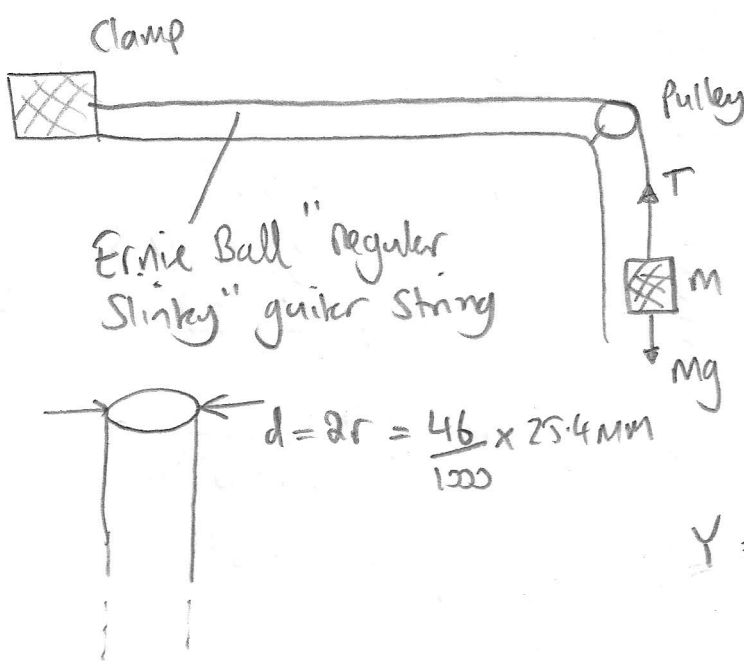 Clamp
Pulley
T
Ernie Ball "regular
Slinky" guitar string
M
Mg
d = 2r = 46/1000 × 25.4mm
Y =